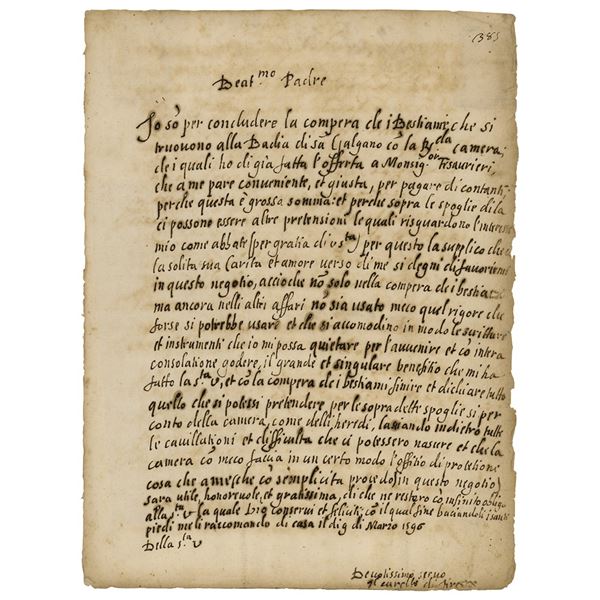 385
Beat.mo Padre
Io sò per concludere la compera de i Bestiami, che si
truovono alla Badia di sã Galgano cõ la R.da camera;
de i quali ho di già fatta l'offerta a Monsig.or Tesaurieri,
che a me pare conveniente, et giusta, per pagare di contanti
perche questa è grossa somma: et perche sopra le spoglie di la
ci possono essere altre pretensioni le quali risguardono l'interesse
mio come abbate (per gratia di v s.ta) per questo la supplico che
la solita sua Carita et amore verso di me si degni di favorirmi
in questo negotio, accioche nõ solo nella compera de i bestiami
ma ancora nelli altri affari nõ sia usato meco quel rigore che
forse si potrebbe usare et che si accomodino in modo le scritture
et instrumenti che io mi possa quietare per l'avvenire et cõ intera
consolatione godere, il grande et singulare benefitio che mi ha
fatto la s.ta v, et cõ la compera de i bestiami, finire et dichiare tutto
quello che si potessi pretendere per le sopra dette spoglie si per
conto della camera, come delli heredi, lasciando indietro tutte
le cavillationi et difficulta che ci potessero nascere et che la
camera cõ meco faccia in un certo modo l'offitio di protetione
cosa che a me (che cõ semplicita procedo in questo negotio)
sara utile, honorevole et gratissima, di che ne restero cõ infinito obligo
alla s.ta v la quale Dio conservi et feliciti cõ il qual fine baciandoli i santi
piedi me li raccomando di casa il dì 9 di Marzo 1596
Della s.ta v
Devotissimo servo